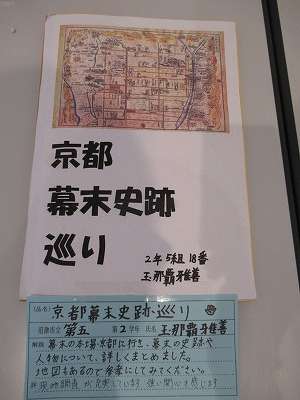 京都
幕末史跡
巡り
2年5組 18番
玉那覇雅善
(品名) 京都幕末史跡巡り
第五
第2学年 氏名 玉那覇雅善
解説 幕末の本場京都に行き、幕末の史跡や
人物について、詳しくまとめました。
地図もあるので参考にしてみてください。
現地調査が充実しています。強い関心を感じます